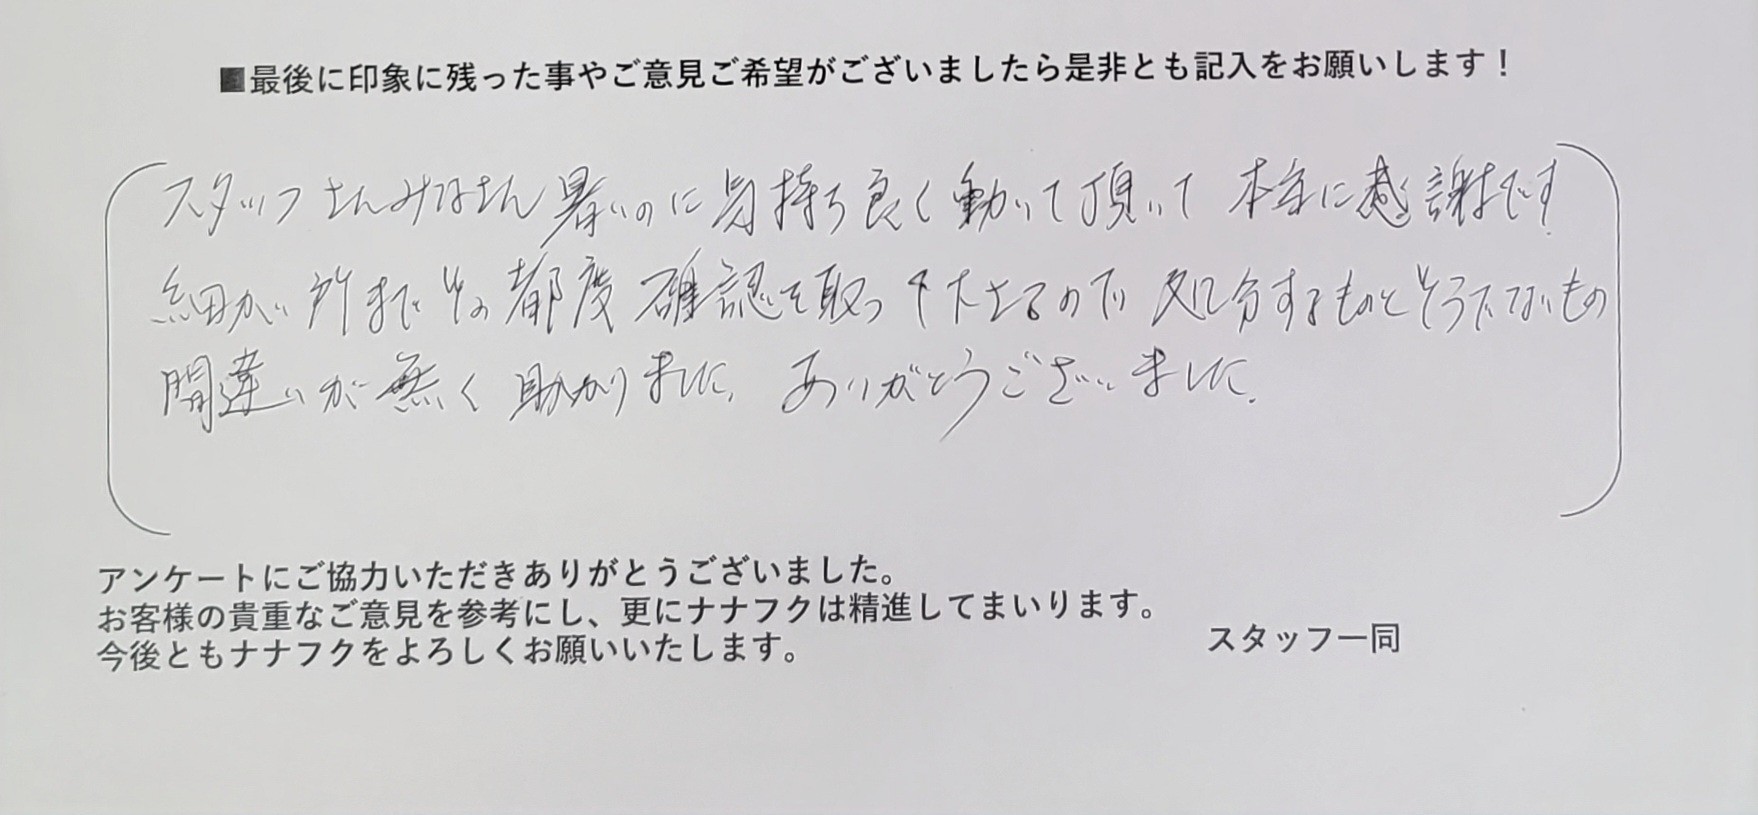 ■最後に印象に残った事やご意見ご希望がございましたら是非とも記入をお願いします！
スタッフさんみなさん暑いのに気持ち良く動いて頂いて 本当に感謝です.
細かい所までその都度確認を取って下さるので 処分するものとそうでないもの
間違いが無く助かりました. ありがとうございました.
アンケートにご協力いただきありがとうございました。
お客様の貴重なご意見を参考にし、更にナナフクは精進してまいります。
今後ともナナフクをよろしくお願いいたします。
スタッフ一同